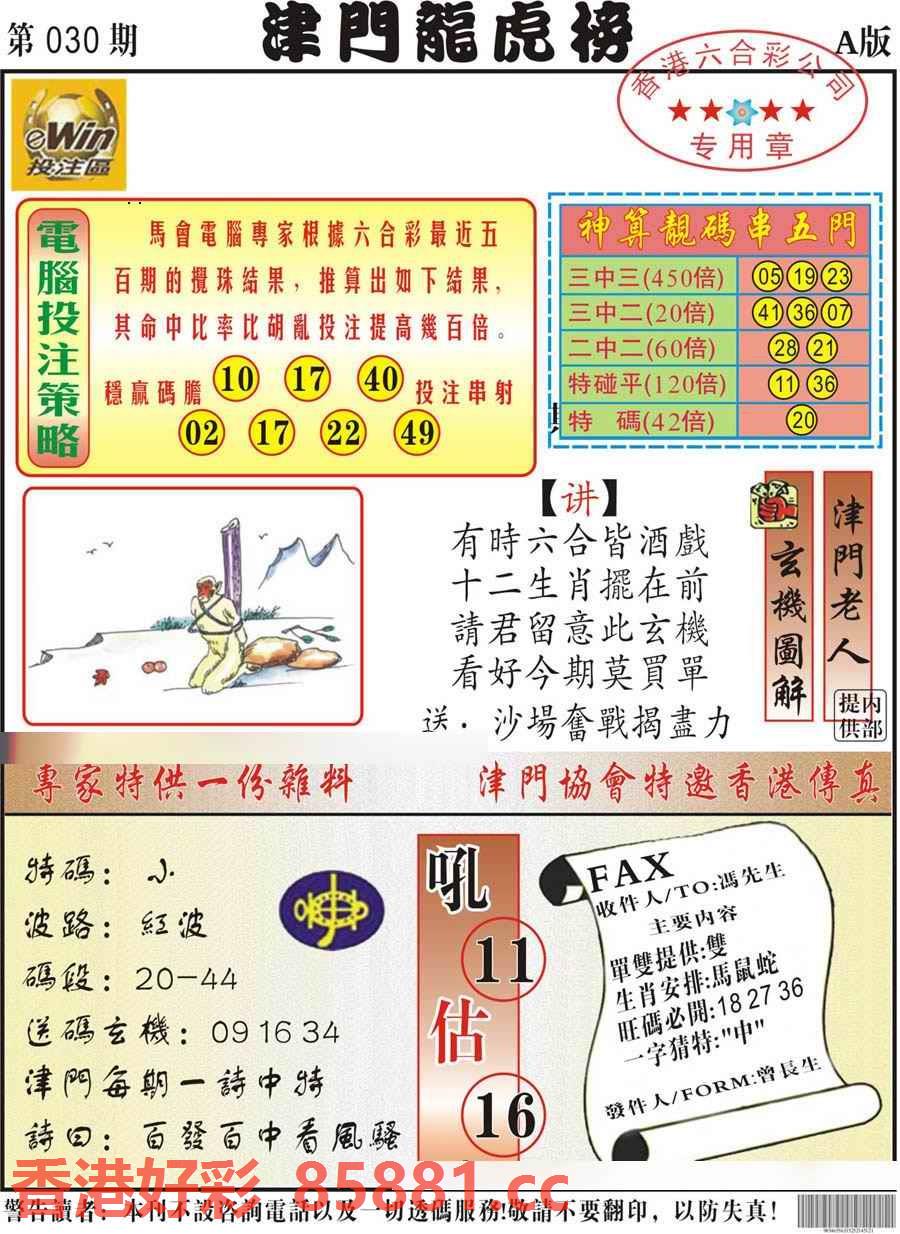 第 030 期
津門龍虎榜
A版
香港六合彩公司
专用章
eWin
投注區
電腦投注策略
馬會電腦專家根據六合彩最近五
百期的攪珠結果，推算出如下結果，
其命中比率比胡亂投注提高幾百倍。
穩贏碼膽 10 17 40 投注串射
02 17 22 49
神算靚碼串五門
三中三(450倍) 05 19 23
三中二(20倍) 41 36 07
二中二(60倍) 28 21
特碰平(120倍) 11 36
特 碼(42倍) 20
【讲】
有時六合皆酒戲
十二生肖擺在前
請君留意此玄機
看好今期莫買單
送．沙場奮戰揭盡力
玄機圖解
津門老人
内部提供
專家特供一份雜料
津門協會特邀香港傳真
特碼：小
波路：紅波
碼段：20-44
送碼玄機：09 16 34
津門每期一詩中特
詩曰：百發百中看風騷
吼
11
估
16
FAX
收件人/TO:馮先生
主要内容
單雙提供:雙
生肖安排:馬鼠蛇
旺碼必開:18 27 36
一字猜特:"中"
發件人/FORM:曾長生
香港好彩 85881.cc
警告讀者：本刊不設咨詢電話以及一切透碼服務!敬請不要翻印，以防失真!